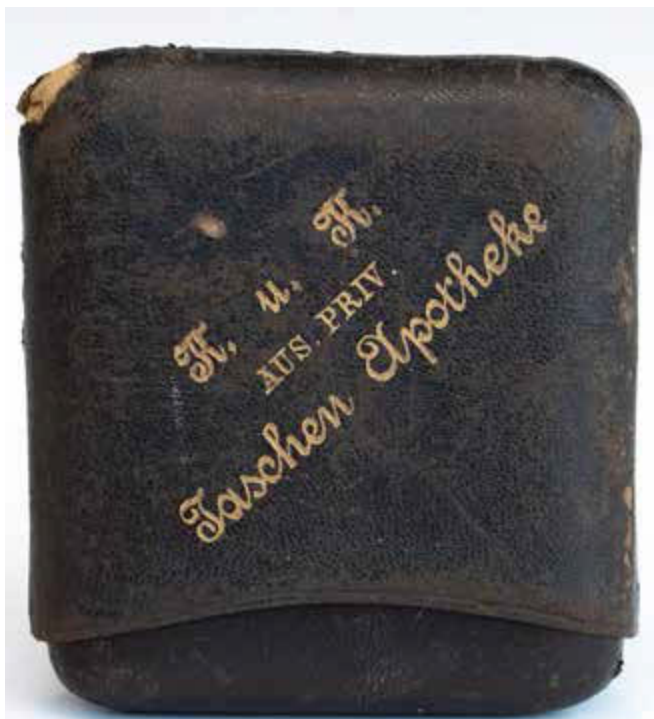 K. u. K.
AUS. PRIV.
Taschen Apotheke